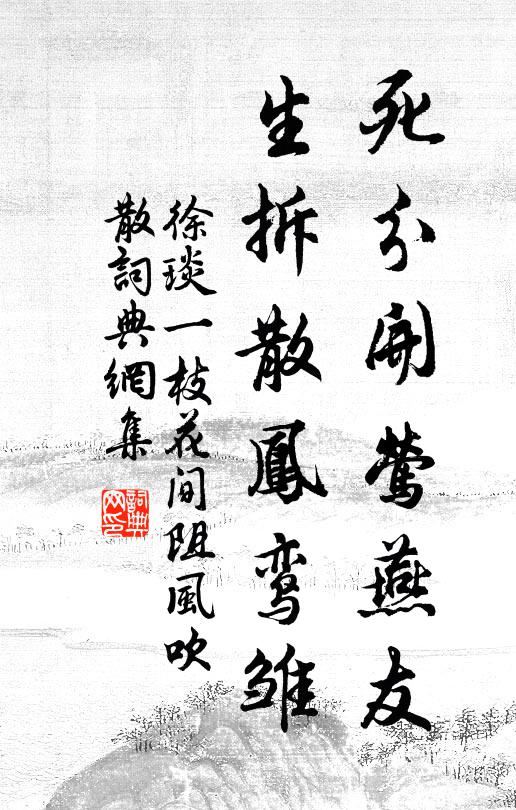 死分開鶯燕友
生拆散鳳鸾雏
徐琰一枝花间阻風吹
散詞典網集
詞典网印